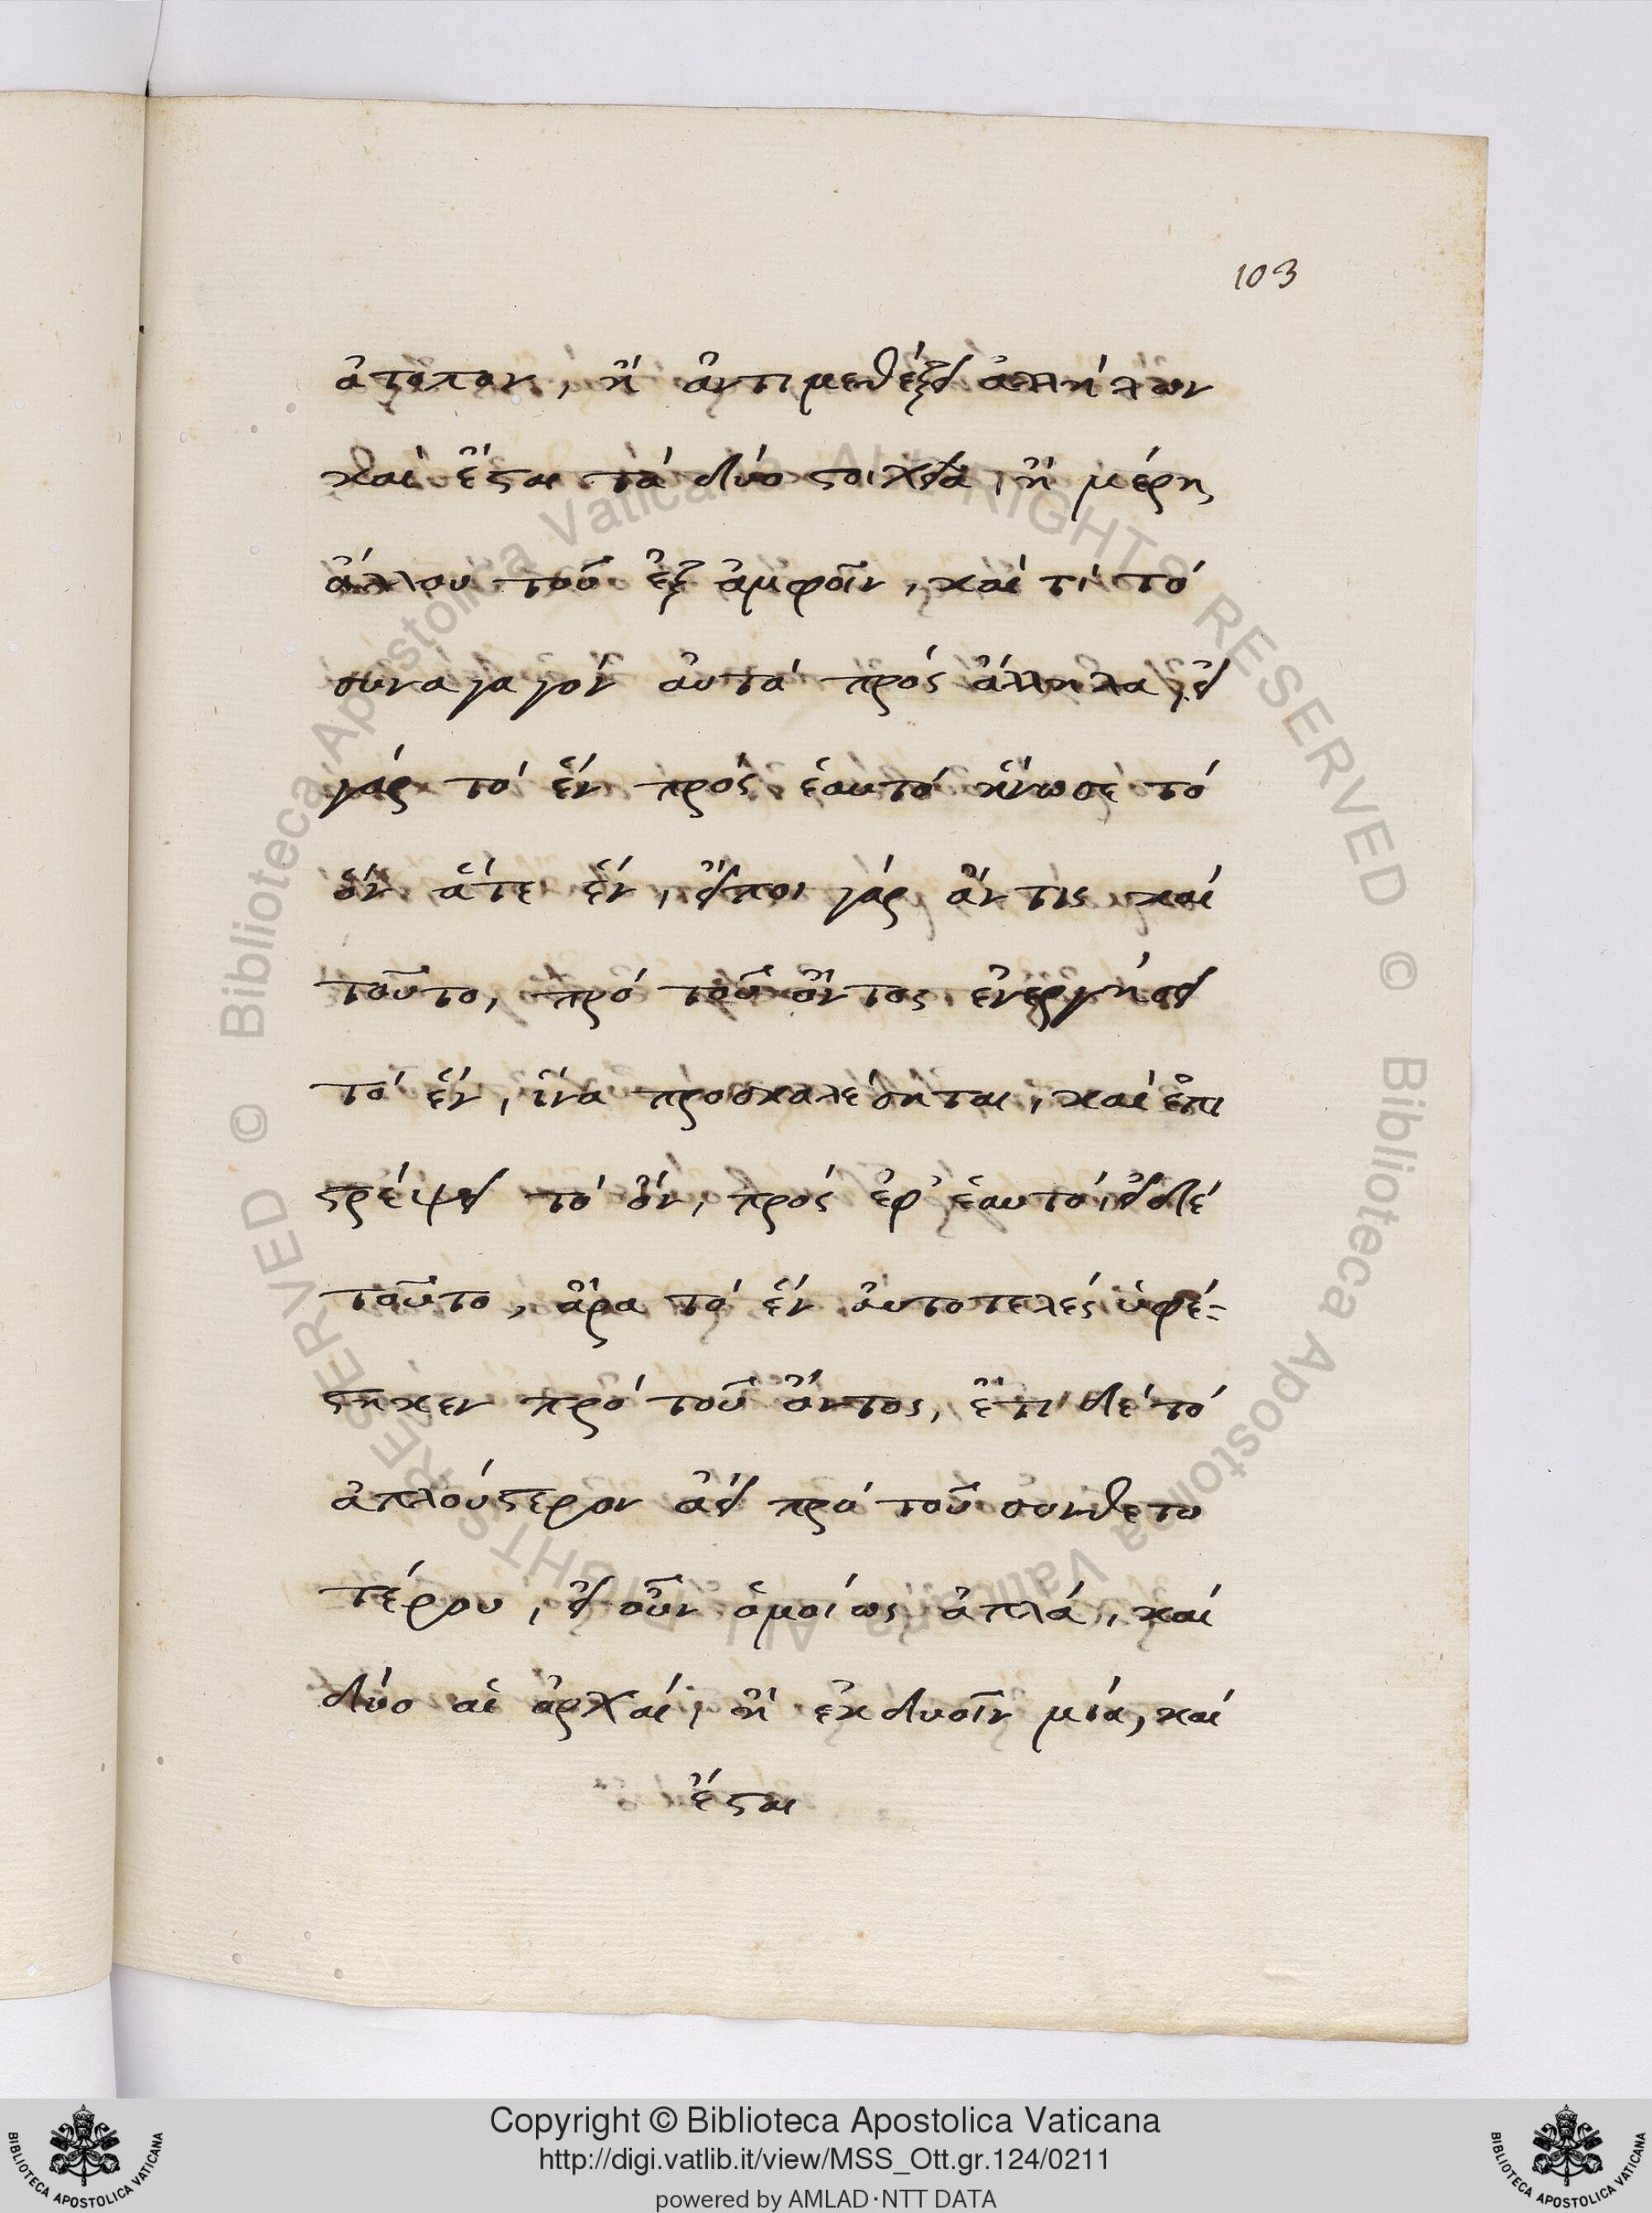 103
ἄτοπον, ἢ ἀντιμεθέξει ἀλλήλων
καὶ ἔσται τὰ δύο στοιχεῖα, ἢ μέρη
ἄλλου τοῦ ἐξ ἀμφοῖν, καὶ τί τὸ
συναγαγὸν αὐτὰ πρὸς ἄλληλα, εἰ
γὰρ τὸ ἓν πρὸς ἑαυτὸ ἥνωσε τὸ
ὂν ἅτε ἓν, εἴποι γὰρ ἄν τις καὶ
τοῦτο, πρὸ τοῦ ὄντος ἐνεργήσει
τὸ ἓν, ἵνα προσκαλέσηται, καὶ ἐπι
στρέψει τὸ ὂν, πρὸς ἐφ' ἑαυτὸ, εἰ δὲ
τοῦτο, ἄρα τὸ ἓν αὐτοτελὲς ὑφέ-
στηκεν πρὸ τοῦ ὄντος, ἔτι δὲ τὸ
ἁπλούστερον ἀεὶ πρὸ τοῦ συνθετο
τέρου, εἰ οὖν ὁμοίως ἁπλὰ, καὶ
δύο αἱ ἀρχαὶ, ἢ ἐκ δυοῖν μία, καὶ
ἔσται
Copyright © Biblioteca Apostolica Vaticana
http://digi.vatlib.it/view/MSS_Ott.gr.124/0211
powered by AMLAD·NTT DATA
BIBLIOTECA APOSTOLICA VATICANA
BIBLIOTECA APOSTOLICA VATICANA
© Biblioteca Apostolica Vaticana ALL RIGHTS RESERVED
© Biblioteca Apostolica Vaticana ALL RIGHTS RESERVED